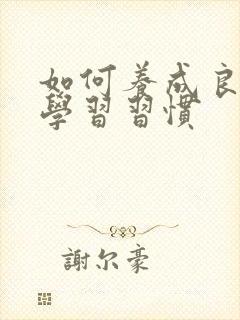 如何養成良
學習習慣
謝尔豪